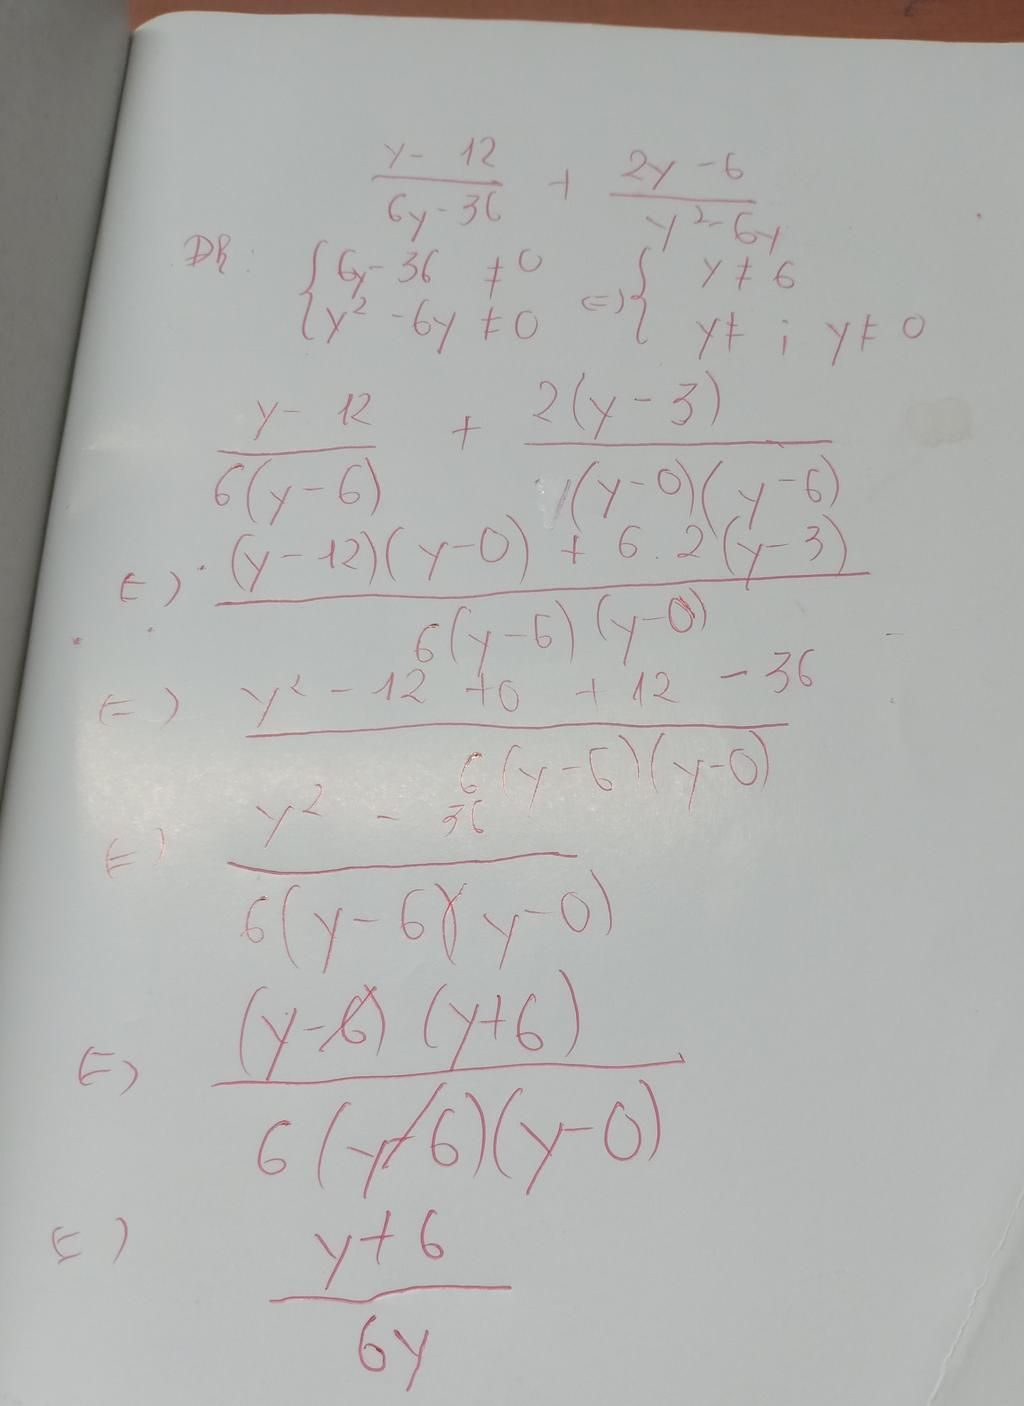 y - 12 / 6y - 36 + 2y - 6 / y² - 6y
Đk: { 6y - 36 ≠ 0 <=> { y ≠ 6
{ y² - 6y ≠ 0 y ≠ ; y ≠ 0
y - 12 / 6(y - 6) + 2(y - 3) / (y - 0)(y - 6)
<=> (y - 12)(y - 0) + 6.2(y - 3) / 6(y - 6)(y - 0)
<=> y² - 12 + 0 + 12 - 36 / 6(y - 6)(y - 0)
<=> y² - 36 / 6(y - 6)(y - 0)
<=> (y - 6)(y + 6) / 6(y - 6)(y - 0)
<=> y + 6 / 6y